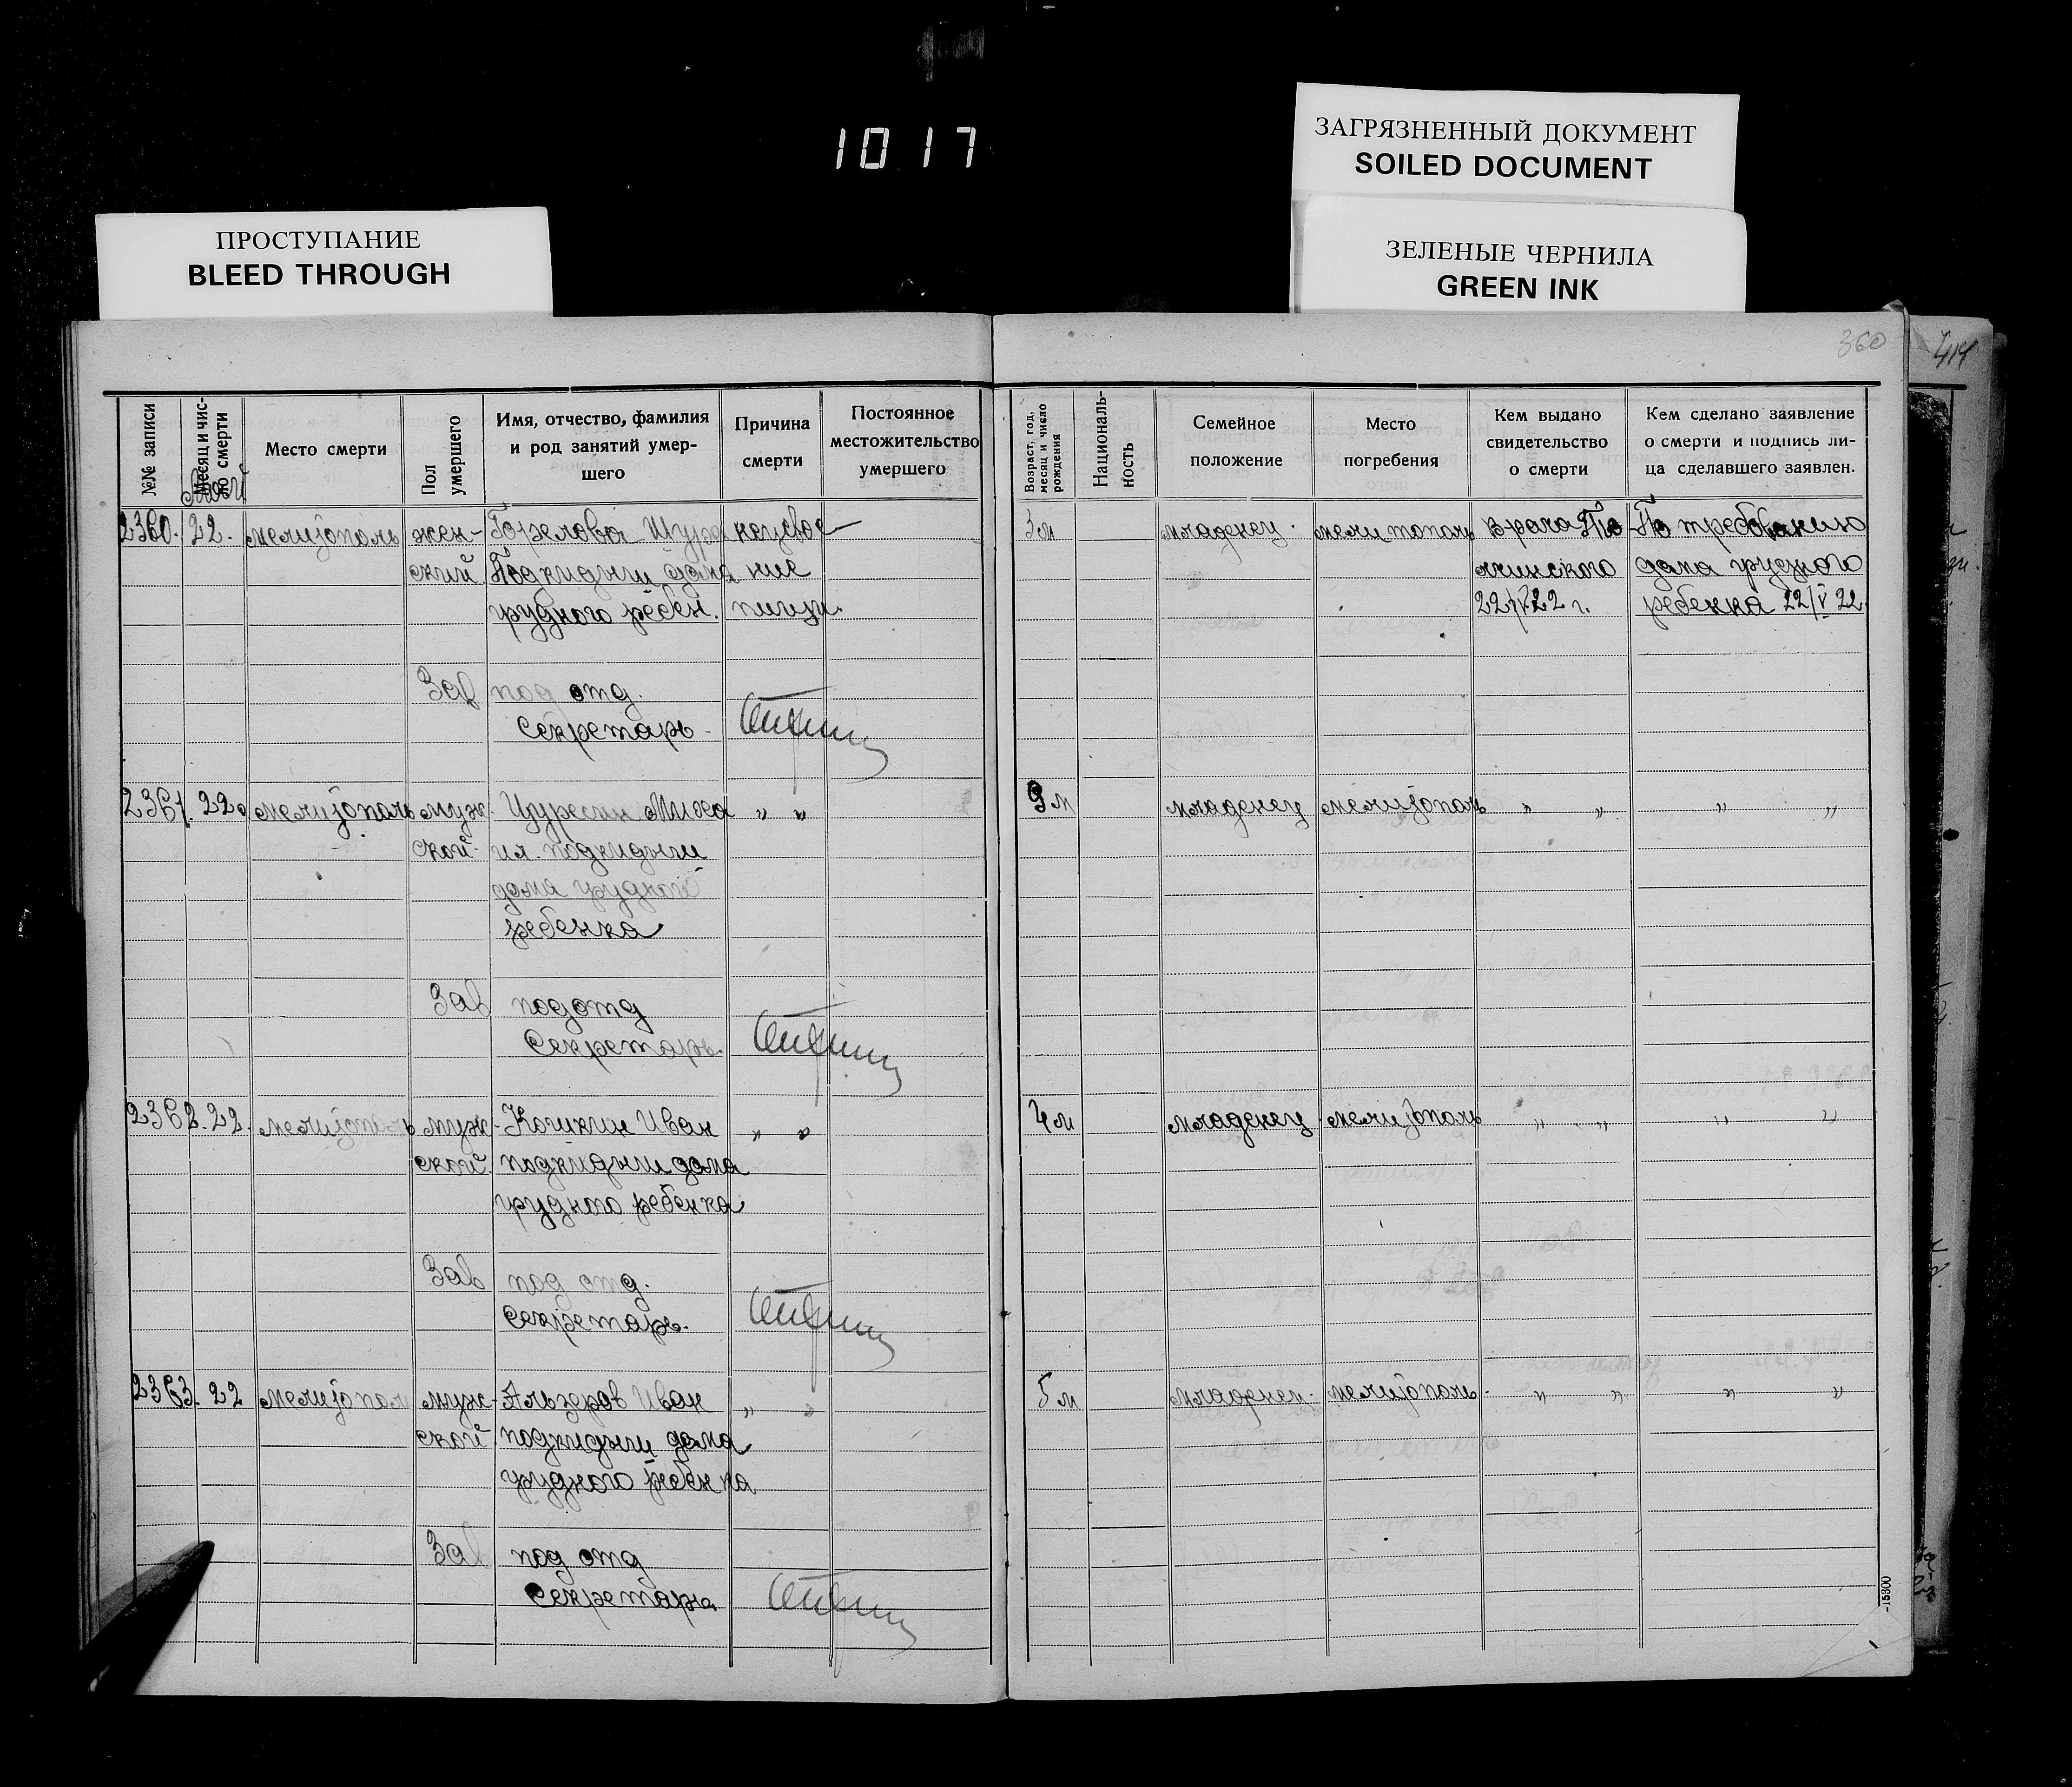 1017
ЗАГРЯЗНЕННЫЙ ДОКУМЕНТ
SOILED DOCUMENT
ПРОСТУПАНИЕ
BLEED THROUGH
ЗЕЛЕНЫЕ ЧЕРНИЛА
GREEN INK
360
414
№№ записи
Месяц и чис-
ло смерти
Место смерти
Пол
умершего
Имя, отчество, фамилия
и род занятий умер-
шего
Причина
смерти
Постоянное
местожительство
умершего
Возраст, год,
месяц и число
рождения
Националь-
ность
Семейное
положение
Место
погребения
Кем выдано
свидетельство
о смерти
Кем сделано заявление
о смерти и подпись ли-
ца сделавшего заявлен.
Май
2360. 22. мелитополь жен- Горелова Шура неусвое- 3 м младенец. мелитополь врача По требованию
ский Подкидыш дома ние дома грудного
грудного ребен. пищи. 22/V 22 г. ребенка 22/V 22
Зав под отд.
Секретарь
2361. 22. мелитополь муж. Миха „ „ м младенец мелитополь „ „ „ „
ской ил. подкидыш
дома грудной
ребенка
Зав подотд
Секретарь.
2362. 22. мелитополь муж- Кошкин Иван „ „ 4 м младенец мелитополь „ „ „ „
ской подкидыш дома
грудного ребенка
Зав под отд.
Секретарь.
2363. 22 мелитопол муж- Иван „ „ 5 м младенец. мелитополь. „ „ „ „
ской подкидыш дома
грудного ребенка
Зав под отд
Секретарь
-15300